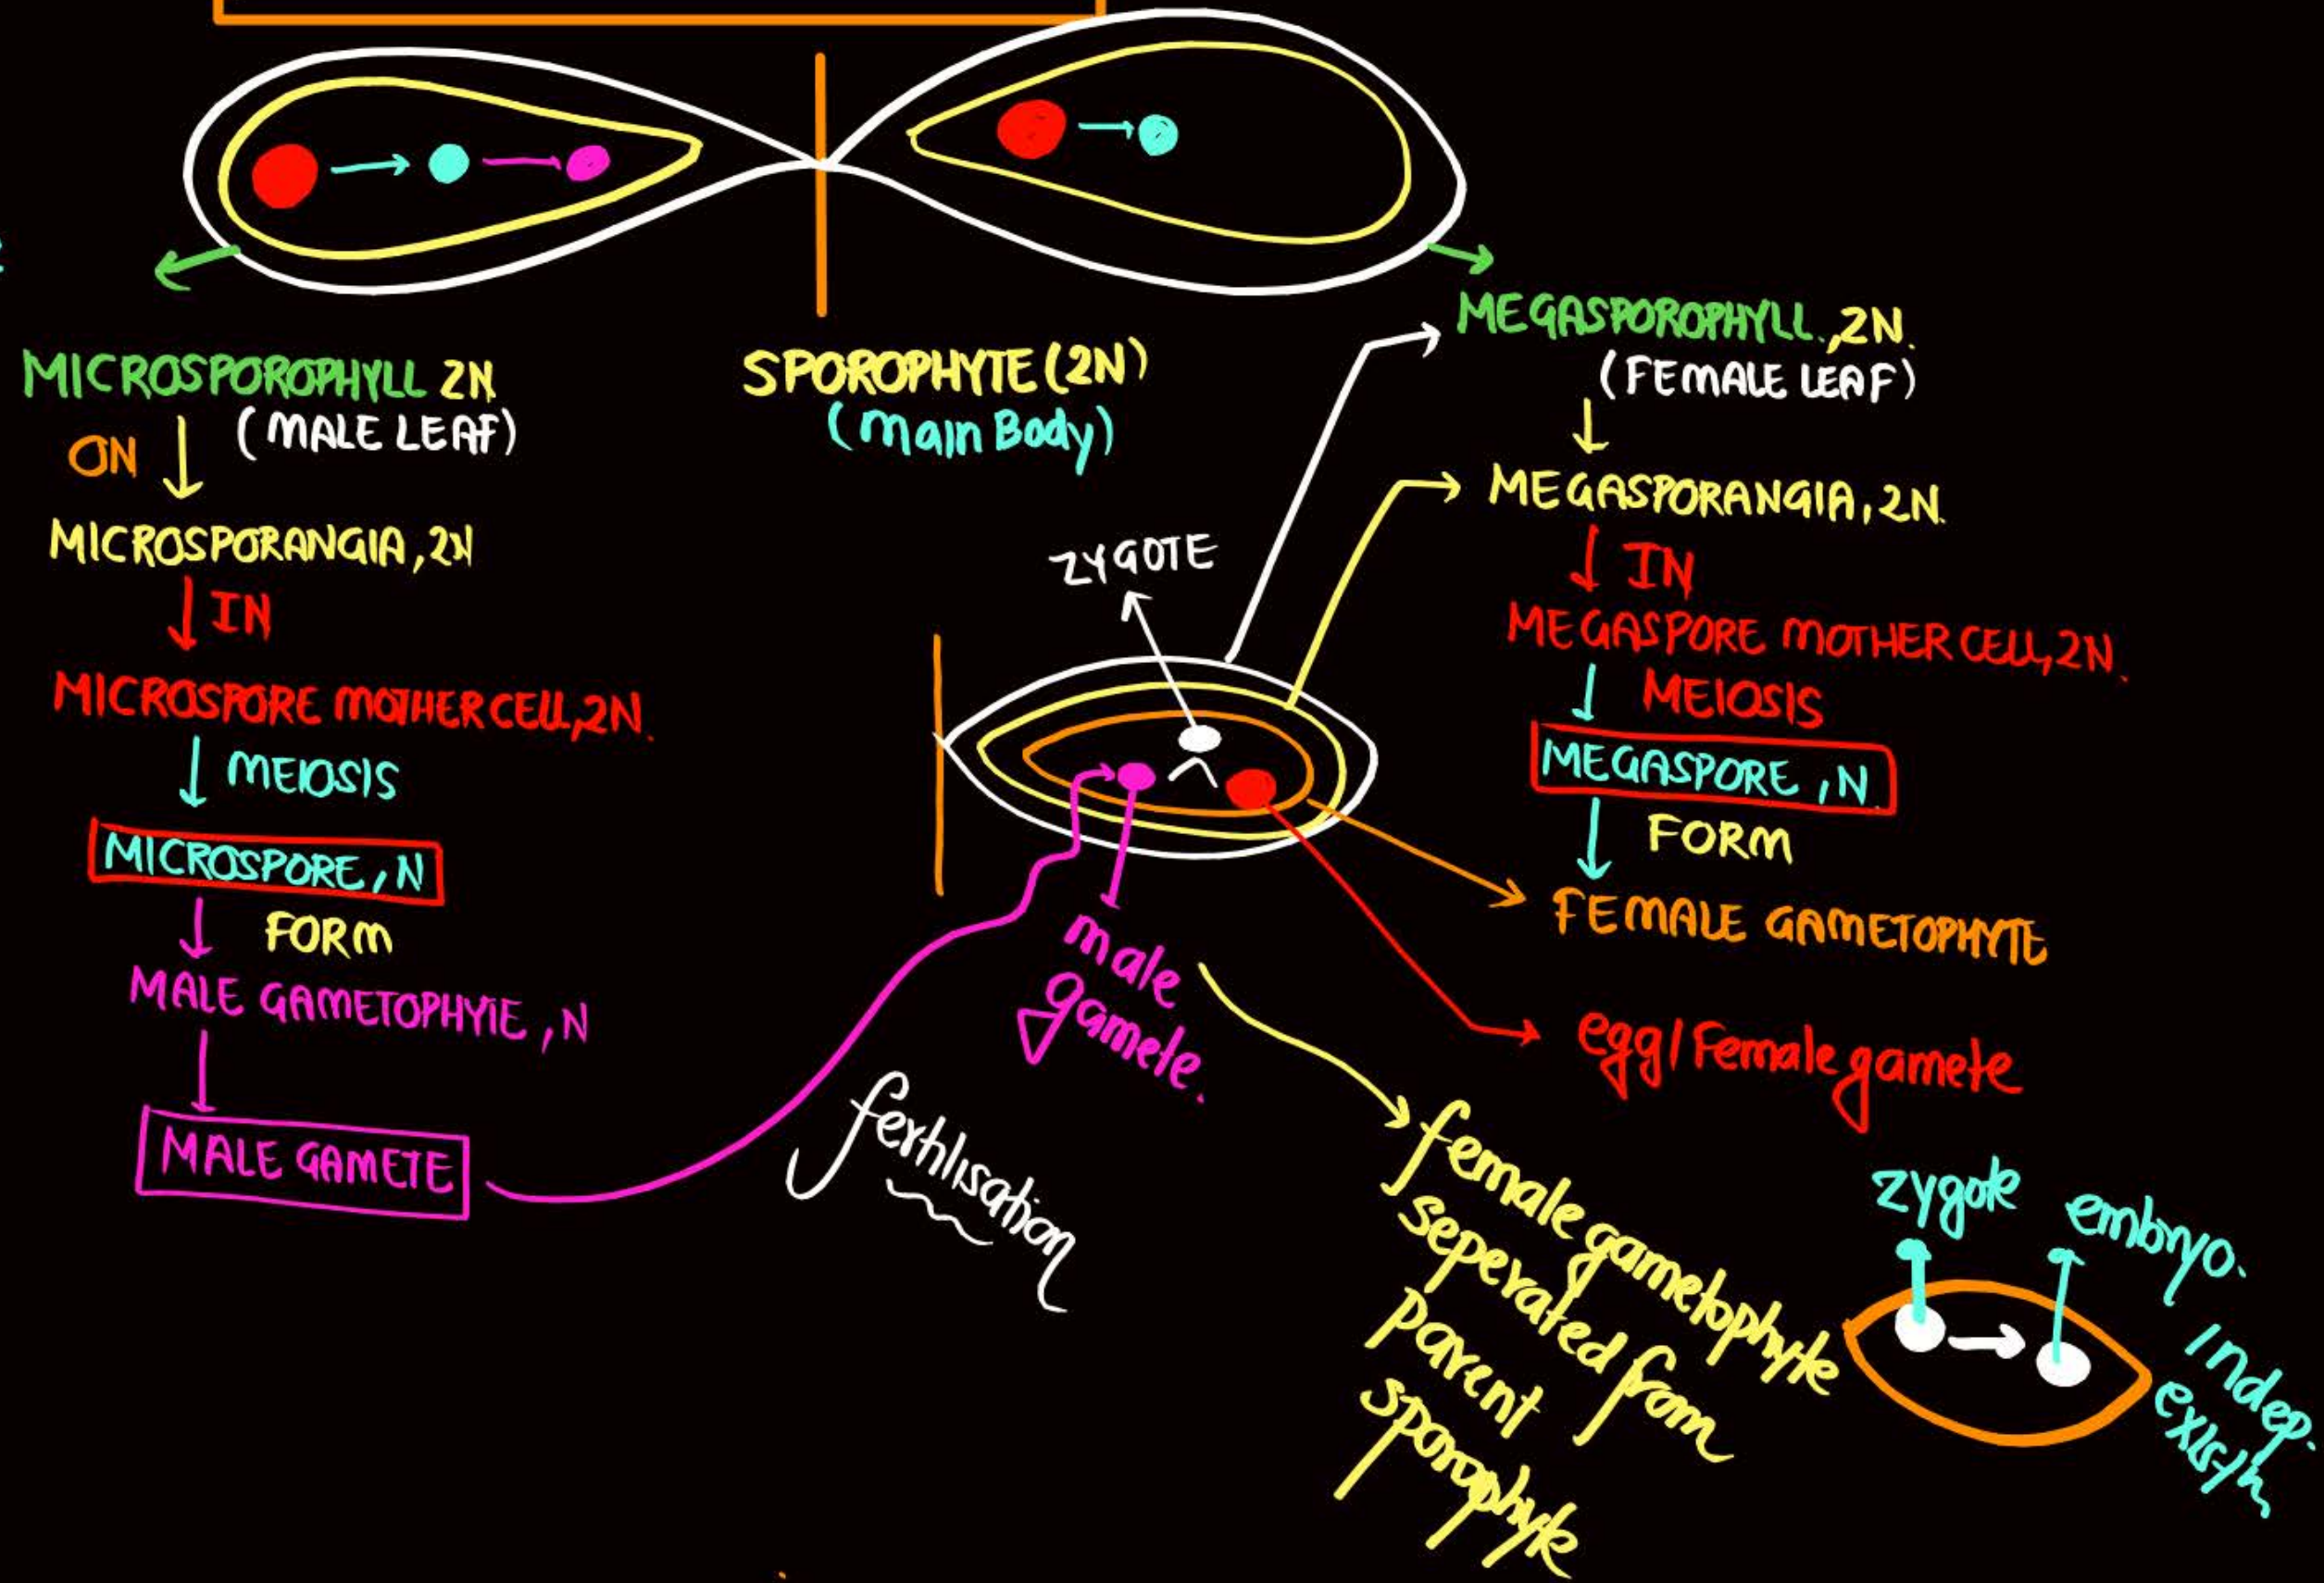 MICROSPOROPHYLL 2N
(MALE LEAF)
ON
MICROSPORANGIA, 2N
IN
MICROSPORE MOTHER CELL, 2N.
MEIOSIS
MICROSPORE, N
FORM
MALE GAMETOPHYTE, N
MALE GAMETE
SPOROPHYTE (2N)
(Main Body)
ZYGOTE
male
gamete.
fertilisation
MEGASPOROPHYLL, 2N.
(FEMALE LEAF)
MEGASPORANGIA, 2N.
IN
MEGASPORE MOTHER CELL, 2N.
MEIOSIS
MEGASPORE, N.
FORM
FEMALE GAMETOPHYTE
egg/Female gamete
female gametophyte
seperated from
parent
sporophyte
zygote
embryo.
Indep.